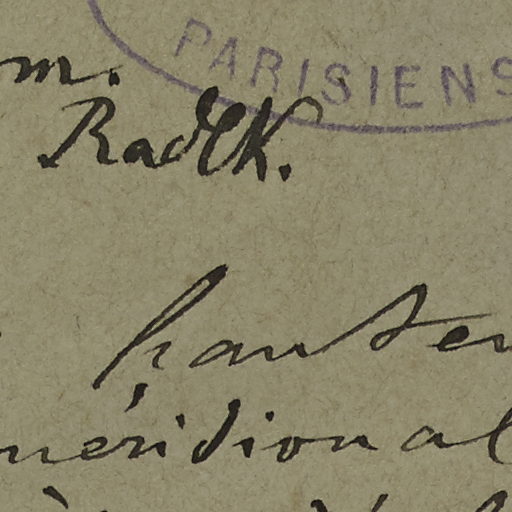 PARISIENS
m.
Radlk.
hauteu
méridional